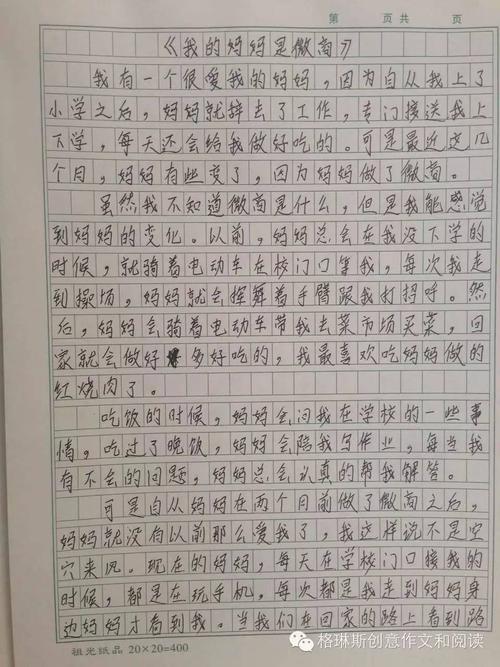 第 页 共 页
《我的妈妈是微商》
我有一个很爱我的妈妈，因为自从我上了
小学之后，妈妈就辞去了工作，专门接送我上
下学，每天还会给我做好吃的。可是最近这几
个月，妈妈有些变了，因为妈妈做了微商。
虽然我不知道微商是什么，但是我能感觉
到妈妈的变化。以前，妈妈总会在我没下学的
时候，就骑着电动车在校门口等我，每次我走
到操场，妈妈就会挥舞着手臂跟我打招呼。然
后，妈妈会骑着电动车带我去菜市场买菜，回
家就会做好多好吃的，我最喜欢吃妈妈做的
红烧肉了。
吃饭的时候，妈妈会问我在学校的一些事
情，吃过了晚饭，妈妈会陪我写作业，每当我
有不会的问题，妈妈总会认真的帮我解答。
可是自从妈妈在两个月前做了微商之后，
妈妈就没有以前那么爱我了，我这样说不是空
穴来风。现在的妈妈，每天在学校门口接我的
时候，都是在玩手机，每次都是我走到妈妈身
边妈妈才看到我。当我们在回家的路上看到路
祖光纸品 20×20=400
格琳斯创意作文和阅读